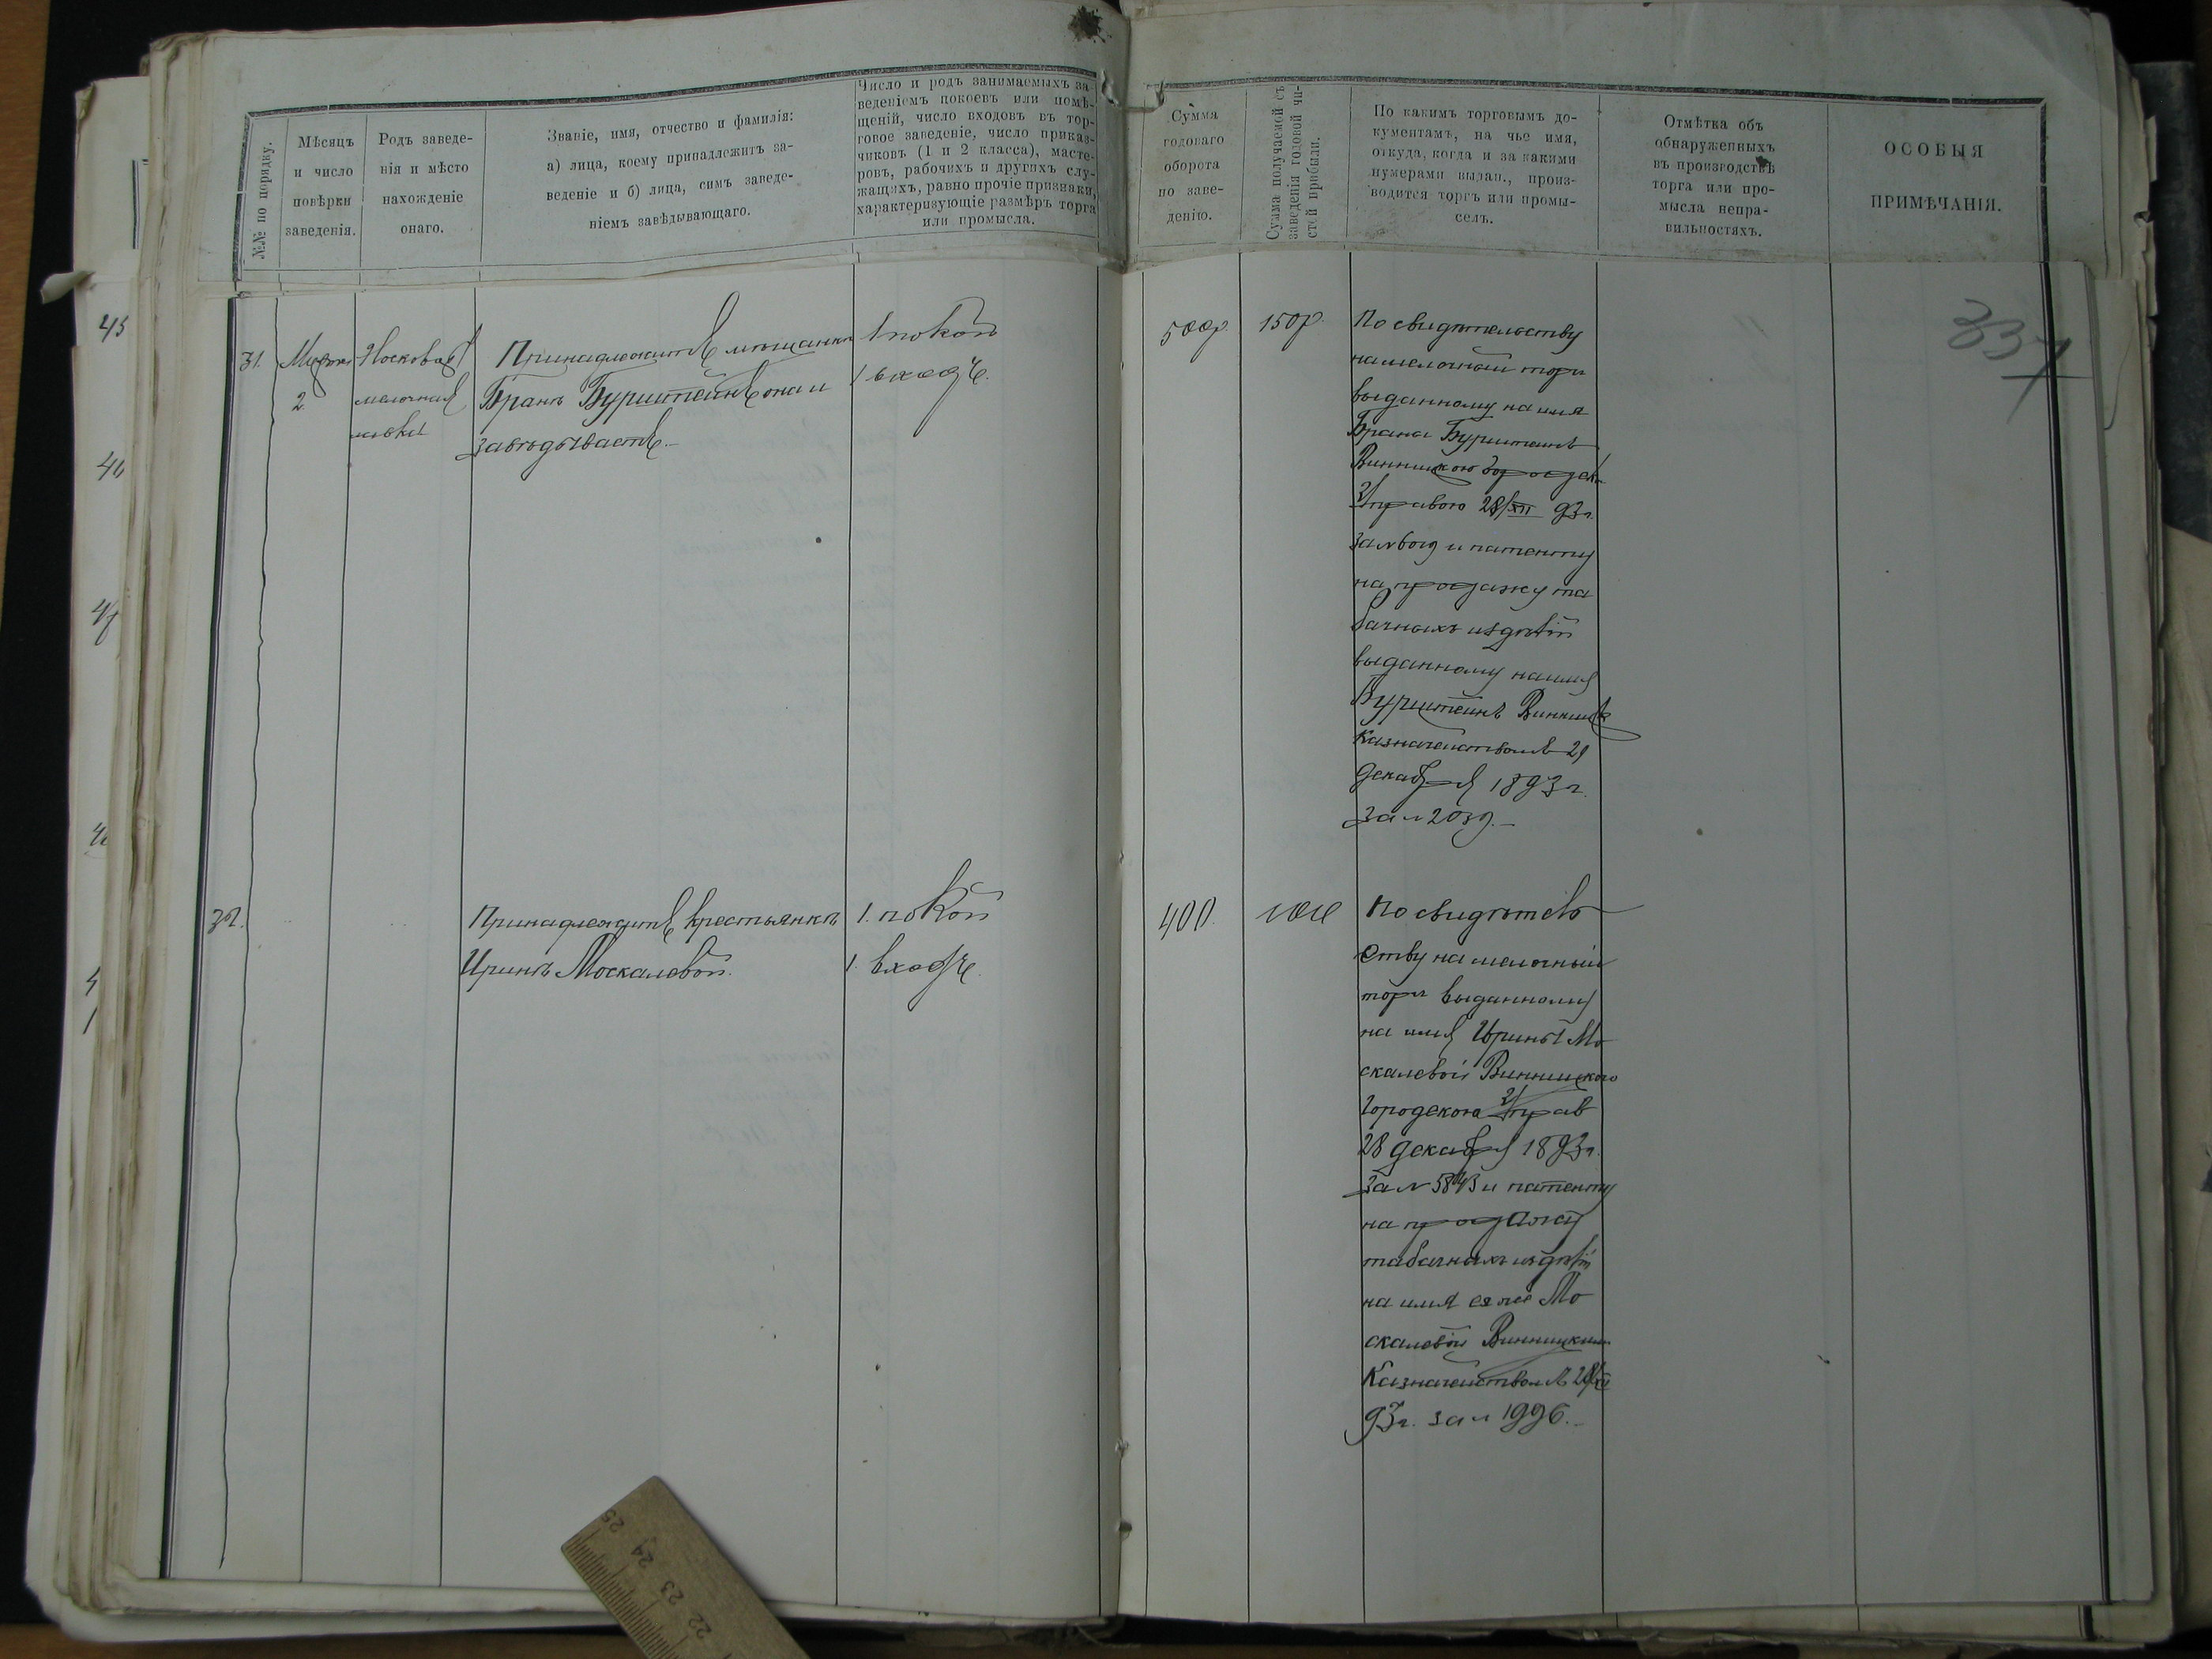 №№ по порядку.
Мѣсяцъ
и число
повѣрки
заведенія.
Родъ заведе-
нія и мѣсто
нахожденіе
онаго.
Званіе, имя, отчество и фамилія:
а) лица, коему принадлежитъ за-
веденіе и б) лица, симъ заведе-
ніемъ завѣдывающаго.
Число и родъ занимаемыхъ за-
веденіемъ покоевъ или помѣ-
щеній, число входовъ въ тор-
говое заведеніе, число приказ-
чиковъ (1 и 2 класса), масте-
ровъ, рабочихъ и другихъ слу-
жащихъ, равно прочіе признаки,
характеризующіе размѣръ торга
или промысла.
Сумма
годоваго
оборота
по заве-
денію.
Сумма получаемой съ
заведенія годовой чи-
стой прибыли.
По какимъ торговымъ до-
кументамъ, на чье имя,
откуда, когда и за какими
нумерами выдан., произ-
водится торгъ или промы-
селъ.
Отмѣтка объ
обнаруженныхъ
въ производствѣ
торга или про-
мысла непра-
вильностяхъ.
ОСОБЫЯ
ПРИМѢЧАНІЯ.
337
45
31.
2
мелочная
лавка
Принадлежитъ мѣщанкѣ
Бранѣ Бурштейнъ она и
завѣдываетъ.
1 покой
1 входъ.
500р.
150р.
По свидѣтельству
на мелочный торг
выданному на имя
Браны Бурштейнъ
Винницкою Городск.
Управою 28/XII 93г.
и патенту
на продажу та
бачныхъ издѣлій
выданному на имя
Бурштейнъ Винницк
Казначействомъ 29
Декабря 1893г.
за № 2039.
32.
Принадлежитъ крестьянкѣ
Иринѣ Москалевой.
1. покой
1. входъ.
400.
По свидѣтель
ству на мелочный
торг выданному
на имя Ирины Мо
скалевой Винницкого
Городскою Управ
28 декабря 1893г.
за № и патенту
на продажу
табачныхъ издѣлій
на имя ея же Мо
скалевой Винницким
Казначействомъ
93г. за № 1996.